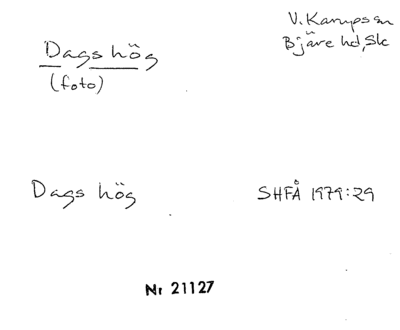 V. Karups sn
Bjäre hd, Sk
Dags hög
(foto)
Dags hög
SHFÅ 1979:29
Nr 21127